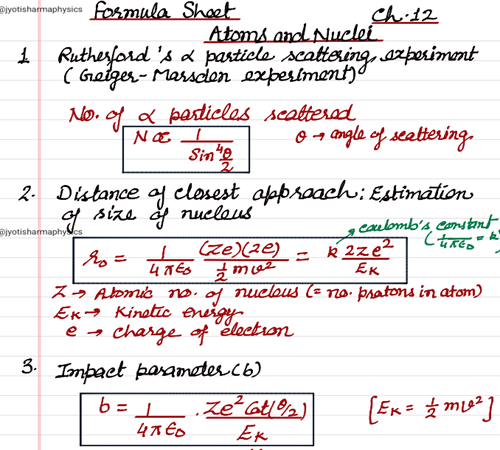 @jyotisharmaphysics
Formula Sheet Ch.12
Atoms and Nuclei
1. Rutherford's α particle scattering experiment
(Geiger-Marsden experiment)
No. of α particles scattered
N ∝ 1/Sin⁴θ/2 θ → angle of scattering.
2. Distance of closest approach: Estimation
of size of nucleus
@jyotisharmaphysics
coulomb's constant
(1/4πε₀ = k)
r₀ = 1/4πε₀ (Ze)(2e)/½mv² = k 2Ze²/Eₖ
Z → Atomic no. of nucleus (= no. protons in atom)
Eₖ → Kinetic energy
e → charge of electron
3. Impact parameter (b)
b = 1/4πε₀ . Ze² Cot(θ/2)/Eₖ [Eₖ = ½ mv²]